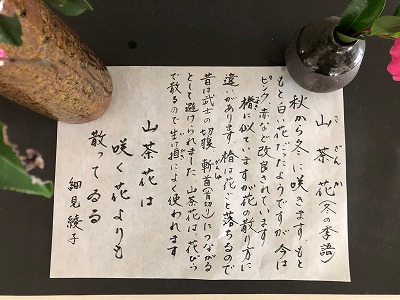 山茶花(冬の季語)
さざんか
秋から冬に咲きます。もと
もと白い花だったようですが、今は
ピンク、赤など改良されています
椿に似ていますが花の散り方に
違いがあります。椿は花ごと落ちるので
昔は武士の切腹、斬首(首切り)につながる
として避けられました。山茶花は花びら
で散るので生け垣によく使われます
山茶花は
咲く花よりも
散ってゐる
細見綾子